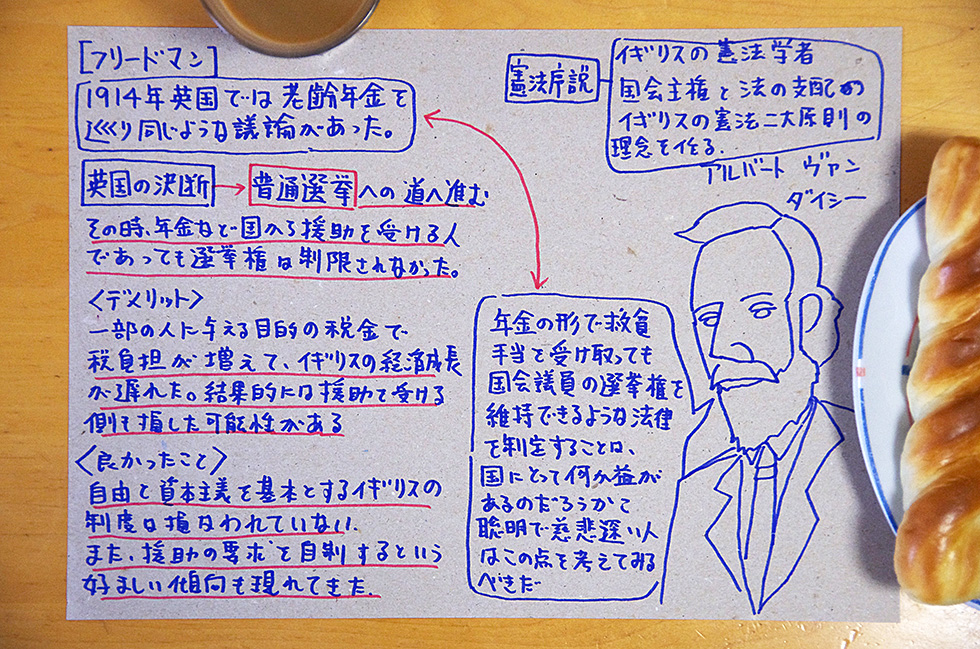 [フリードマン]
1914年英国では老齢年金を
巡り同じような議論があった。
英国の決断→普通選挙への道へ進む
その時、年金など国から援助を受ける人
であっても選挙権は制限されなかった。
<デメリット>
一部の人に与える目的の税金で
税負担が増えて、イギリスの経済成長
が遅れた。結果的には援助を受ける
側も損した可能性がある
<良かったこと>
自由と資本主義を基本とするイギリスの
制度は損なわれていない.
また、援助の要求を自制するという
好ましい傾向も現れてきた.
憲法序説
イギリスの憲法学者
国会主権と法の支配の
イギリスの憲法二大原則の
理念を作る.
アルバート ヴァン
ダイシー
年金の形で救貧
手当を受け取っても
国会議員の選挙権を
維持できるような法律
を制定することは、
国にとって何か益が
あるのだろうかて
聡明で慈悲深い人
はこの点を考えてみる
べきだ